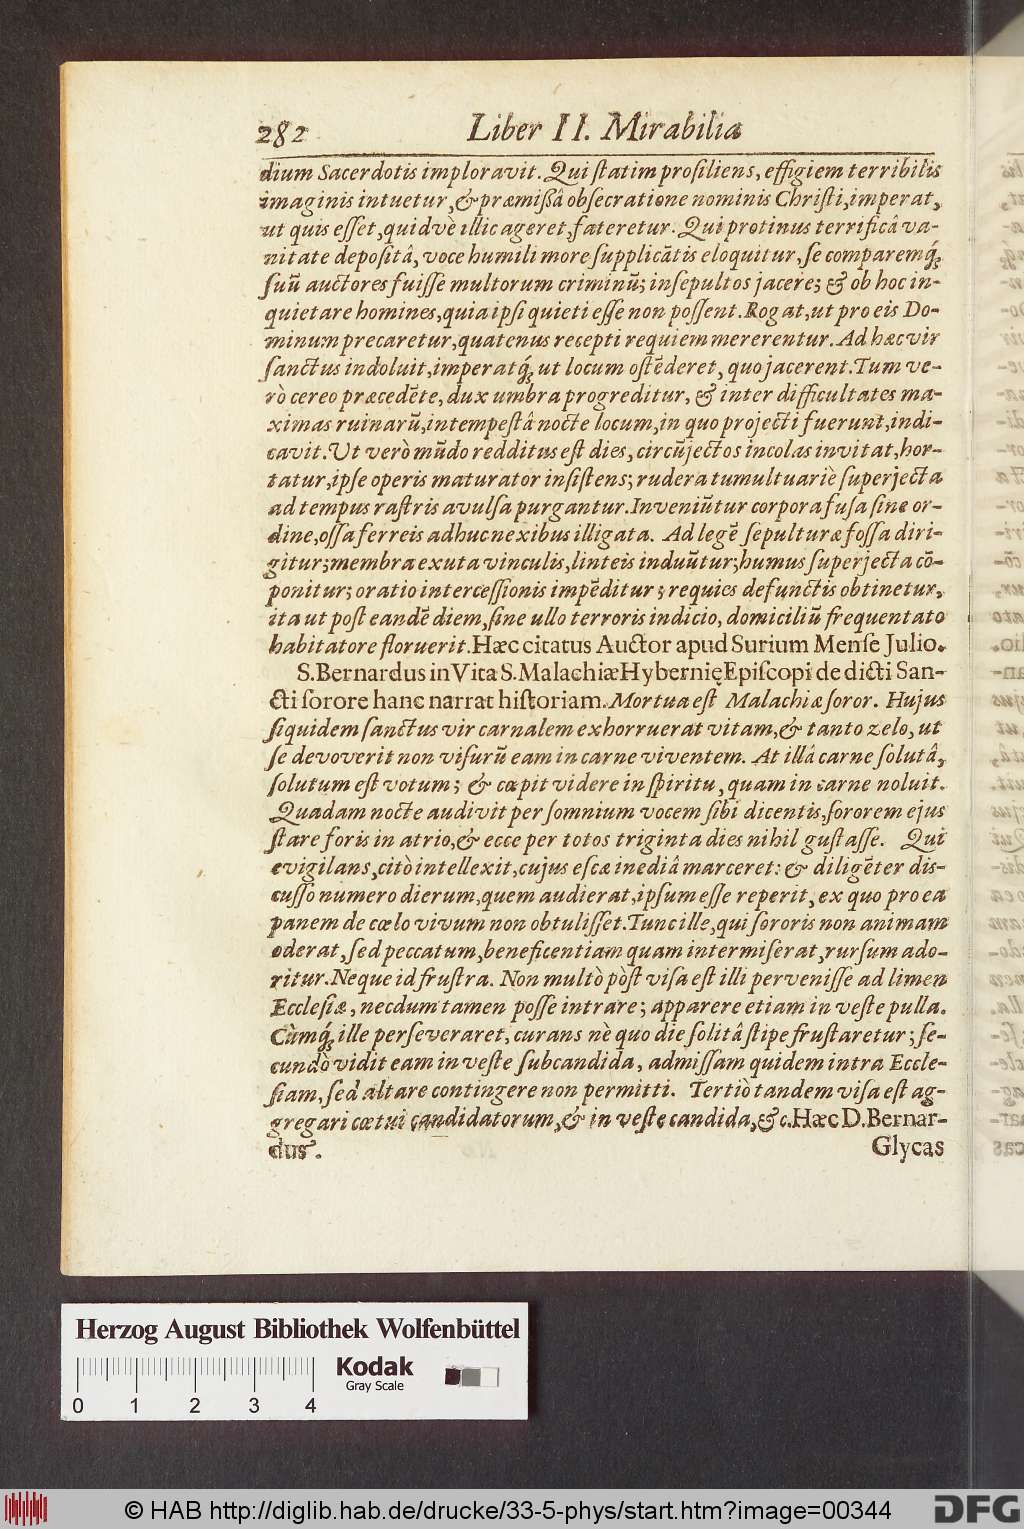 282 Liber II. Mirabilia
dium Sacerdotis imploravit. Qui ſtatim proſiliens, effigiem terribilis
imaginis intuetur, & præmiſsâ obſecratione nominis Chriſti, imperat,
ut quis eſſet, quidvè illic ageret, fateretur. Qui protinus terrificâ va-
nitate depoſitâ, voce humili more ſupplicātis eloquitur, ſe comparemq́;
ſuū auctores fuiſſe multorum criminū; inſepultos jacere; & ob hoc in-
quietare homines, quia ipſi quieti eſſe non poſſent. Rogat, ut pro eis Do-
minum precaretur, quatenus recepti requiem mererentur. Ad hæc vir
ſanctus indoluit, imperatq́; ut locum oſtēderet, quo jacerent. Tum ve-
rò cereo præcedēte, dux umbra progreditur, & inter difficultates ma-
ximas ruinarū, intempeſtâ nocte locum, in quo projecti fuerunt, indi-
cavit. Ut verò mūdo redditus eſt dies, circūjectos incolas invitat, hor-
tatur, ipſe operis maturator inſiſtens; rudera tumultuariè ſuperjecta
ad tempus raſtris avulſa purgantur. Inveniūtur corpora fuſa ſine or-
dine, oſſa ferreis adhuc nexibus illigata. Ad legē ſepulturæ foſſa diri-
gitur; membra exuta vinculis, linteis induūtur; humus ſuperjecta cō-
ponitur; oratio interceſſionis impēditur; requies defunctis obtinetur,
ita ut poſt eandē diem, ſine ullo terroris indicio, domiciliū frequentato
habitatore floruerit. Hæc citatus Auctor apud Surium Menſe Julio.
S. Bernardus in Vita S. Malachiæ Hybernię Epiſcopi de dicti San-
cti ſorore hanc narrat hiſtoriam. Mortua eſt Malachiæ ſoror. Hujus
ſiquidem ſanctus vir carnalem exhorruerat vitam, & tanto zelo, ut
ſe devoverit non viſurū eam in carne viventem. At illâ carne ſolutâ,
ſolutum eſt votum; & cœpit videre in ſpiritu, quam in carne noluit.
Quadam nocte audivit per ſomnium vocem ſibi dicentis, ſororem ejus
ſtare foris in atrio, & ecce per totos triginta dies nihil guſtaſſe. Qui
evigilans, citò intellexit, cujus eſcæ inediâ marceret: & diligēter diſ-
cuſſo numero dierum, quem audierat, ipſum eſſe reperit, ex quo pro ea
panem de cœlo vivum non obtuliſſet. Tunc ille, qui ſororis non animam
oderat, ſed peccatum, beneficentiam quam intermiſerat, rurſum ado-
ritur. Neque id fruſtra. Non multò pòſt viſa eſt illi perveniſſe ad limen
Eccleſiæ, necdum tamen poſſe intrare; apparere etiam in veſte pulla.
Cùmq́; ille perſeveraret, curans nè quo die ſolitâ ſtipe fruſtaretur; ſe-
cundò vidit eam in veſte ſubcandida, admiſſam quidem intra Eccle-
ſiam, ſed altare contingere non permitti. Tertiò tandem viſa eſt ag-
gregari cœtui candidatorum, & in veſte candida, &c. Hæc D. Bernar-
dus.
Glycas
Herzog August Bibliothek Wolfenbüttel
Kodak
Gray Scale
0 1 2 3 4
© HAB http://diglib.hab.de/drucke/33-5-phys/start.htm?image=00344
DFG